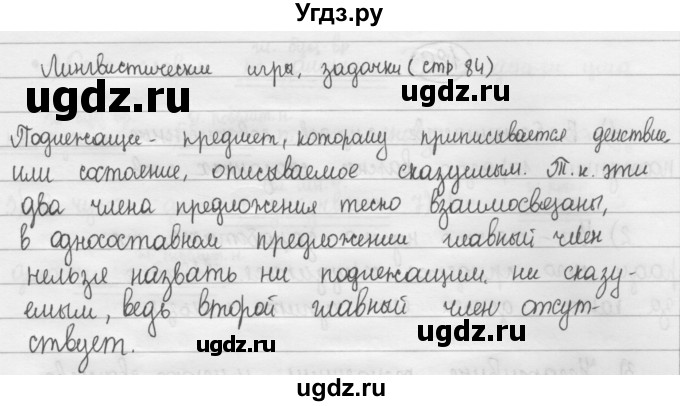 Угдз.ру
Лингвистические игры, задачки (стр 84)
ugdz.ru ugdz.ru
Подлежащее - предмет, которому приписывается действие
или состояние, описываемое сказуемым. Т.к. эти
два члена предложения тесно взаимосвезаны,
в односоставном предложении главный член
нельзя назвать ни подлежащим, ни сказу-
емым, ведь второй главный член отсут-
ствует.
ugdz.ru ugdz.ru
ugdz.ru